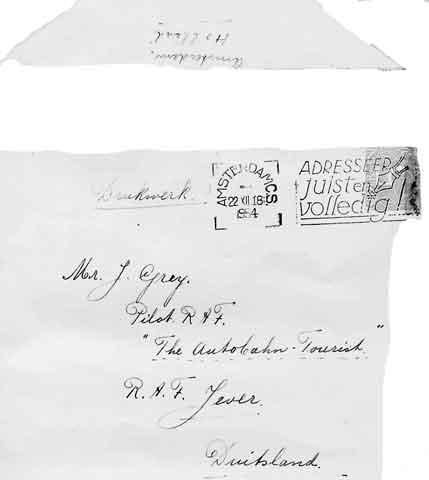 Amsterdam.
Holland
Drukwerk.
AMSTERDAM C.S.
22 XII 18
1954
ADRESSEER
juist en
volledig!
Mr. J. Grey.
Pilot R A F.
"The Autobahn-Tourist."
R. A. F. Jever.
Duitsland.